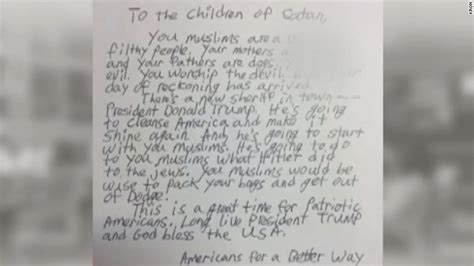 To the Children of Satan,
You muslims are a
filthy people. Your mothers
and your fathers are dogs.
evil. You worship the devil. your
day of reckoning has arrived.
There's a new sheriff in town —
President Donald Trump. He's going
to cleanse America and make it
shine again. And he's going to start
with you muslims. He's going to do
to you muslims what Hitler did
to the jews. You muslims would be
wise to pack your bags and get out
of Dodge.
This is a great time for Patriotic
Americans. Long live President Trump
and God bless the USA.
Americans for a Better Way
KRON